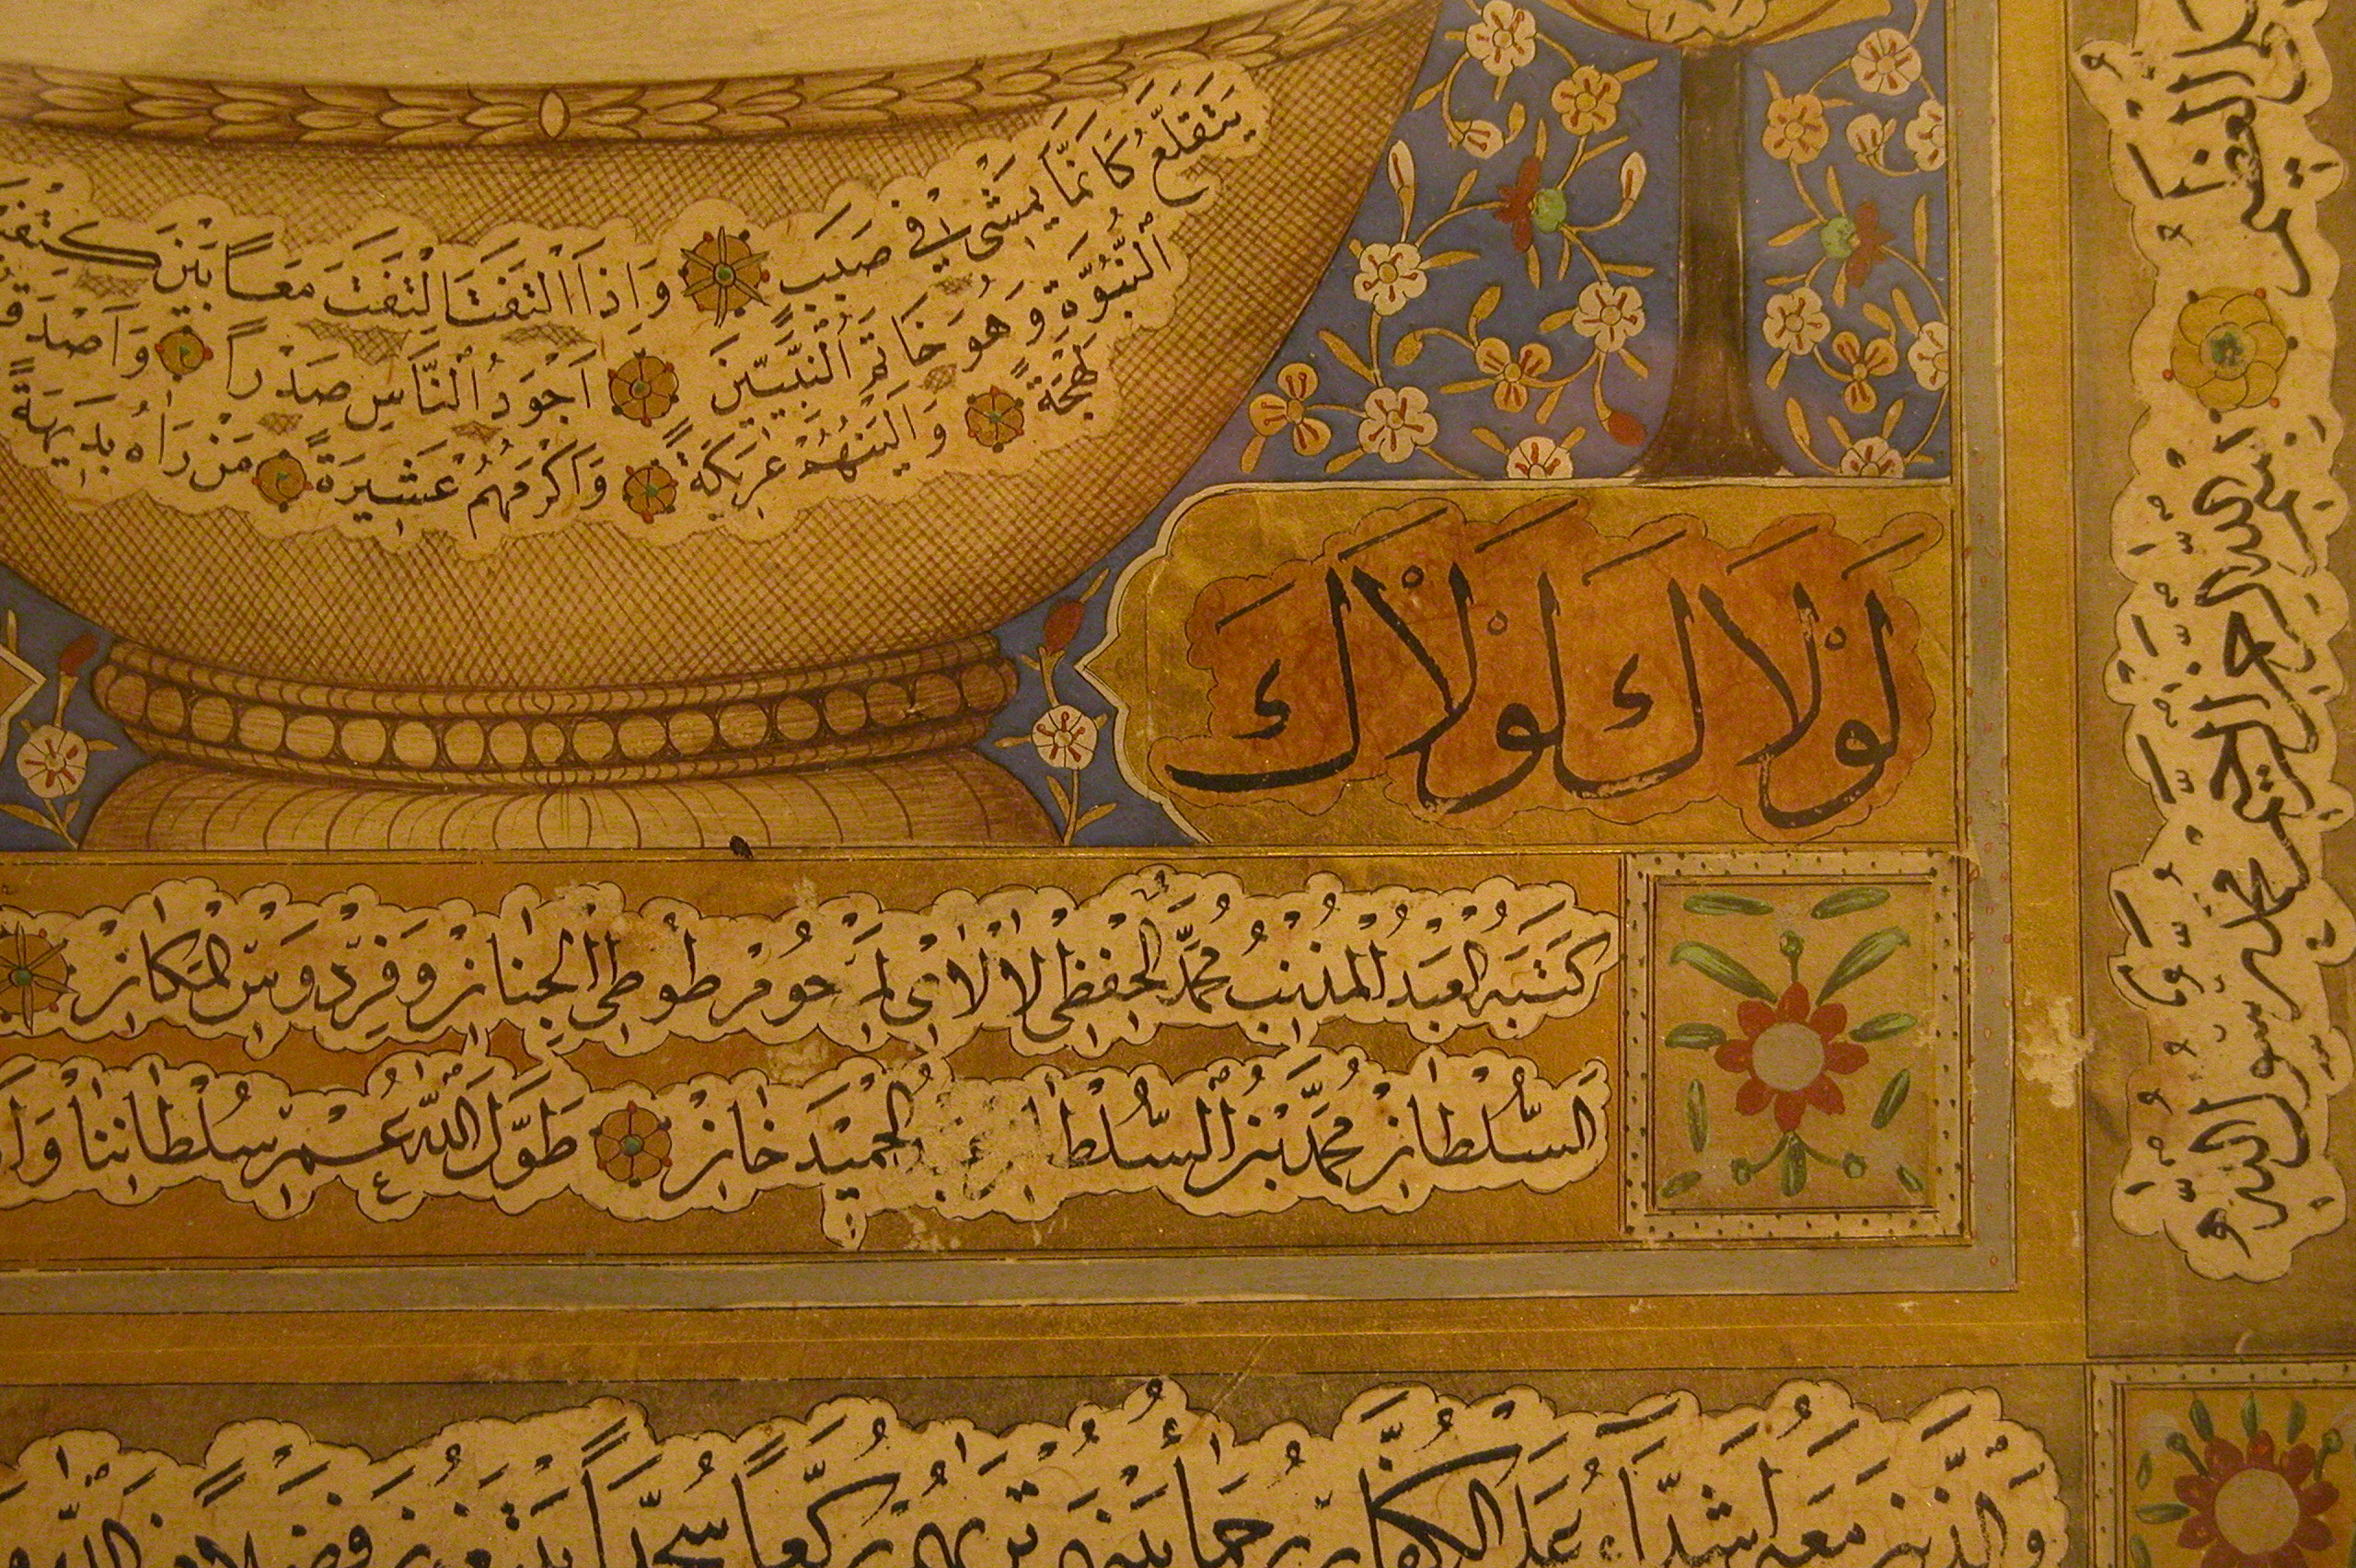 يَتَقَلَّعُ كَاَنَّمَا يَمْشِى فِى صَبَبٍ وَاِذَا الْتَفَتَ اِلْتَفَتَ مَعًا بَيْنَ
النُّبُوَّةِ وَهُوَ خَاتَمُ النَّبِيّينَ اَجْوَدُ النَّاسِ صَدْرًا وَاَصْدَقُ
لَهْجَةً وَاَلْيَنُهُمْ عَرِيكَةً وَاَكْرَمُهُمْ عَشِيرَةً مَنْ رَاٰهُ بَدِيهَةً
لَوْلَاكَ لَوْلَاكَ
كَتَبَهُ الْعَبْدُ الْمُذْنِبُ مُحَمَّدُ الْحِفْظِى لِلْمَرْحُومِ طُوطِى الْجِنَانِ وَفِرْدَوْسِ الْمَكَانِ
السُّلْطَانِ مُحَمَّدْ بْنِ السُّلْطَانِ الْحَمِيدْ خَانْ طَوَّلَ اللّٰهُ عُمْرَ سُلْطَانِنَا
وَالَّذِينَ مَعَهُ اَشِدَّاءُ عَلَى الْكُفَّارِ رُحَمَاءُ بَيْنَهُمْ تَرٰيهُمْ رُكَّعًا سُجَّدًا يَبْتَغُونَ فَضْلًا مِنَ اللّٰهِ
الْعَظِيمِ بِسْمِ اللّٰهِ الرَّحْمٰنِ الرَّحِيمِ مُحَمَّدٌ رَسُولُ اللّٰهِ وَ